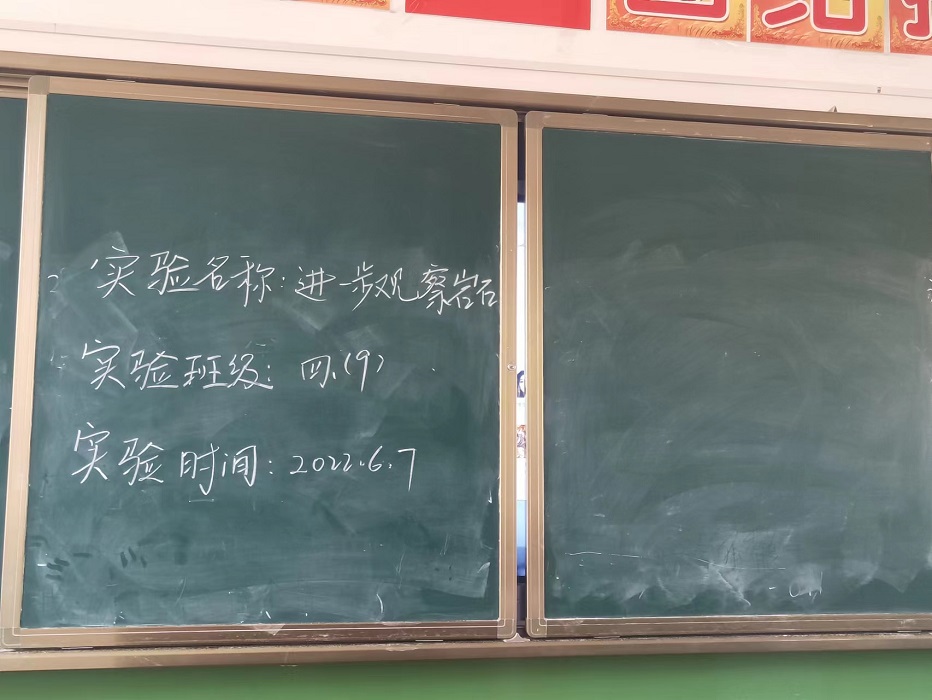 实验名称:进一步观察岩石
实验班级:四(9)
实验时间:2022.6.7